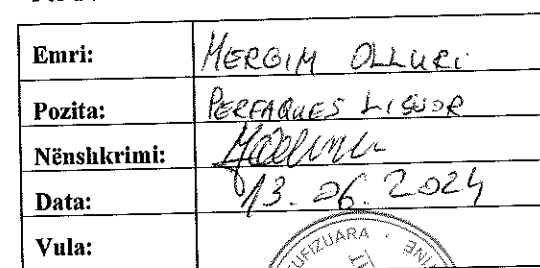 Emri: MERGIM OLLURI
Pozita: PERFAQUES LIGJOR
Nënshkrimi:
Data: 13.06.2024
Vula:
UFIZUARA